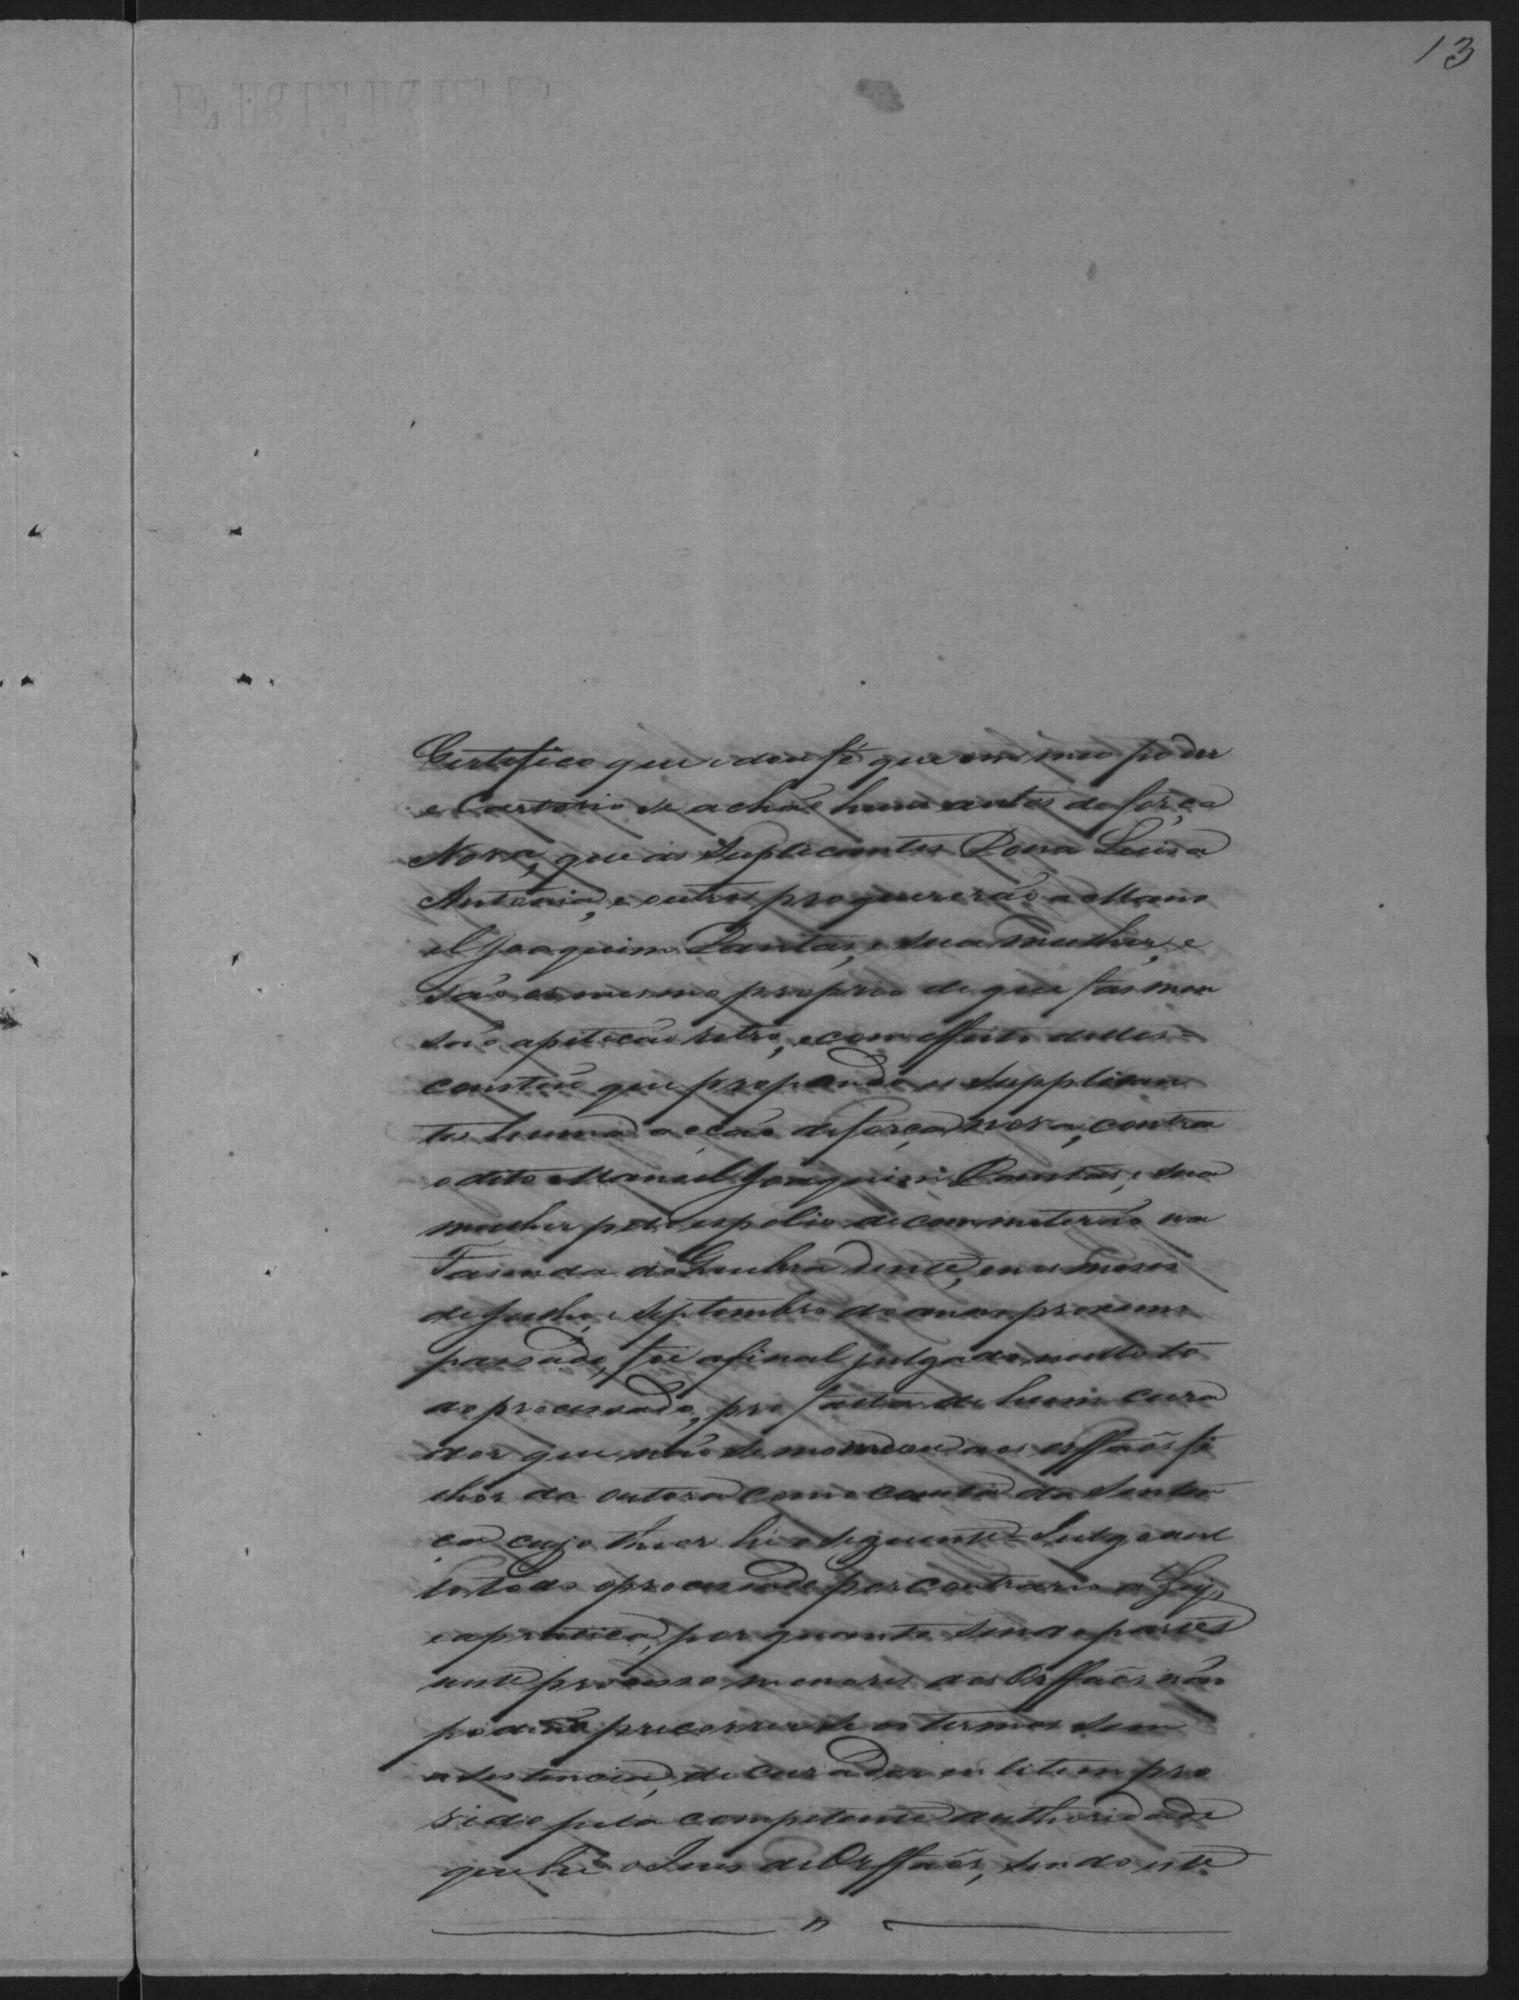 13
Certefico que e dou fé que em meu poder
e Cartorio se achão huns autos de força
Nova, que as Suplicantes Dona Luisa
Antonia, e outros proquererão a Mano
el Joaquim Dantas, e sua mulher, e
são os mesmo proprio de que fás men
são apetição retro, e com effeito delles =
consta que propondo os Supplican
tes huma acção de força nova, contra
o dito Manoel Joaquim Dantas, e sua
mulher pelo espolio que commeterão na
Fasenda do Quebra dente, em os meses
de Julho, e Septembro do anno proximo
passado, foi afinal julgado nullo to
do processado, pro falta de hum cura
dor que não se momeou aos orffãos fi
lhos da autora como consta da Senten
ça cujo theor hé o seguinte = Julgo nul
lo todo o processado por contrario a Ley,
e a pratica, por quanto sendo partes
neste processo menores aos Orffãos não
podião precorrer se os termos sem
asestencia, de curador in litem pro
vido pela competente authoridade
que hé o Juis de Orffãos, sendo este